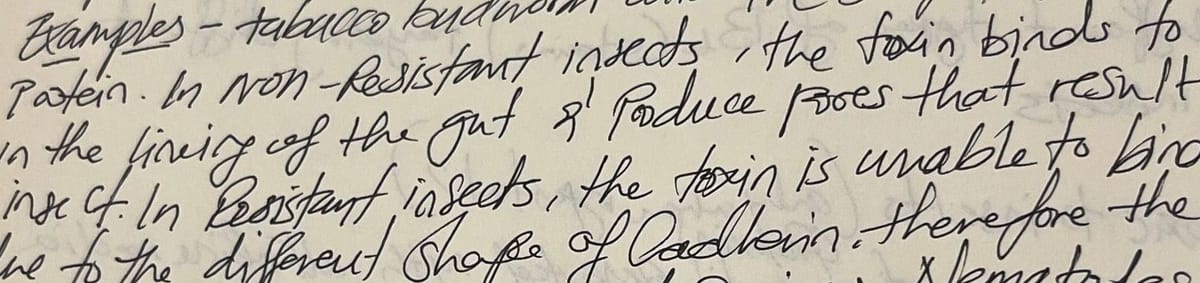 Examples - tabacco budworm
Protein. In non-Resistant insects, the toxin binds to
in the lineing of the gut & Produce pores that result
insect. In Resistant insects, the toxin is unable to bind
due to the different shape of Cadherin. therefore the
Nematodes